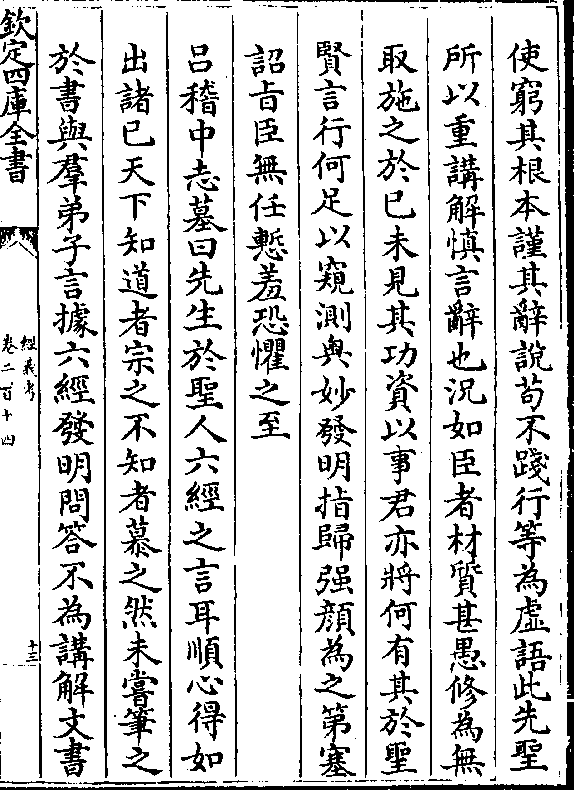 使窮其根本謹其辭說苟不踐行等為虛語此先聖
所以重講解慎言辭也況如臣者材質甚愚修為無
取施之於已未見其功資以事君亦將何有其於聖
賢言行何足以窺測奥妙發明指歸强顔為之第塞
詔㫖臣無任慙羞恐懼之至
吕稽中志墓曰先生於聖人六經之言耳順心得如
出諸已天下知道者宗之不知者慕之然未嘗筆之
於書與羣弟子言據六經發明問答不為講解文書
欽定四庫全書
經義考
卷二百十四
十三